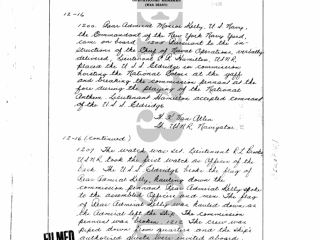 12-16
1200. Rear Admiral Monroe Kelly, U.S. Navy,
the Commandant of the New York Navy Yard,
came on board. 1200 Pursuant to the in-
structions of the Chief of Naval Operations, verbally
delivered, Lieutenant C.R. Hamilton, USNR,
placed the U.S.S. Eldridge in commission
hoisting the National Colors at the gaff
and breaking the commission pennant at the
fore during the playing of the National
Anthem. Lieutenant Hamilton accepted command
of the U.S.S. Eldridge.
Van Allen
USNR, Navigator
12-16 (continued)
1207 The watch was set. Lieutenant
USNR took the first watch as Officer of the
Deck. The U.S.S. Eldridge broke the flag of
Rear Admiral Kelly, hauling down the
commission pennant. Rear Admiral Kelly spoke
to the assembled Officers and men. The flag
of Rear Admiral Kelly was hauled down, as
the Admiral left the Ship. The commission
pennant was broken. The crew was
piped down from quarters and the Ship's
authorized guests were invited aboard.
FILMED